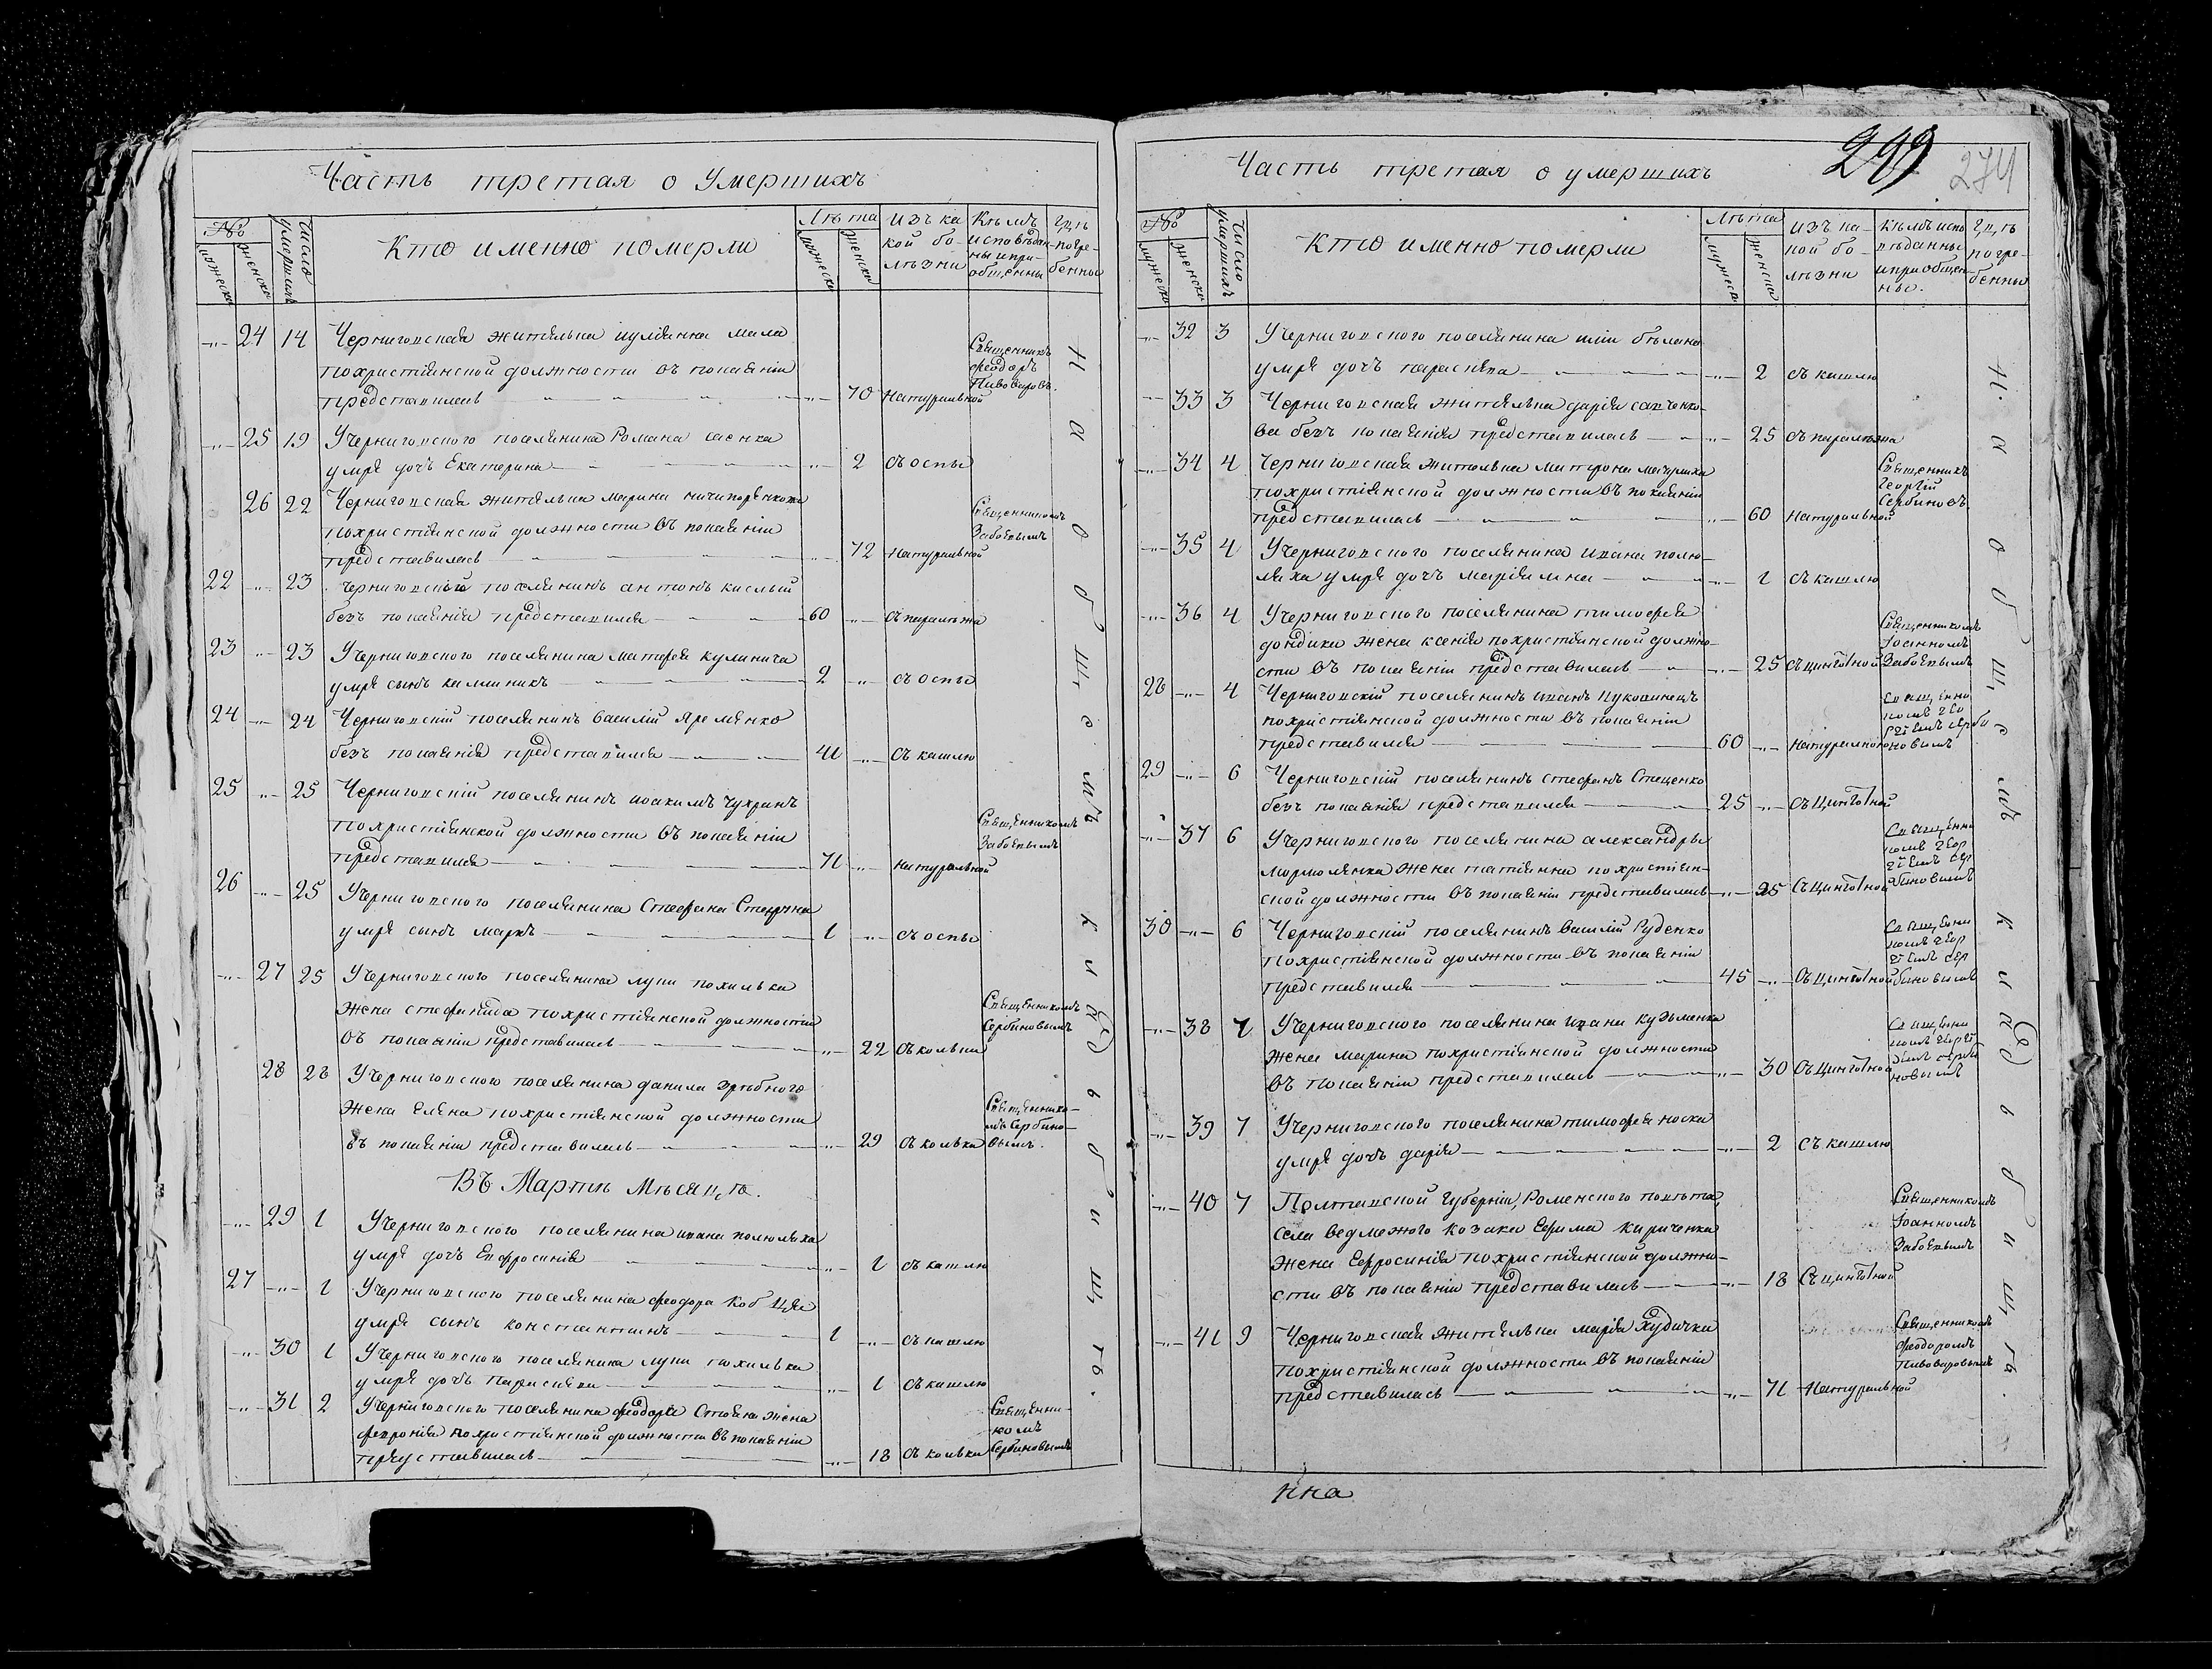 Часть третая о умершихъ
№ мужеска женска
Число умершихъ
Кто именно померли
Лѣта мужеска женска
Изъ ка
кой бо-
лѣзни
Кѣмъ
исповѣдан-
ны и прі-
общены
Гдѣ
погре-
бенны
24 14 Черниговская жителька
похристіянской должности въ покаяніи
представилась 70 Натуральной
Священникъ
Феодоръ
Пивоваровъ.
25 19 У черниговского поселянина Романа саенка
умре дочъ Екатерина 2 съ оспы
26 22 Черниговская жителька марина ничипоренкова
похристіянской должности въ покаяніи
представилась 72 Натуральной
Священникомъ
Забоевымъ
22 23 Черниговскій поселянинъ антонъ кислый
безъ покаянія представился 60 съ паралѣжа
23 23 У черниговского поселянина матфея кулинича
умре сынъ каллиникъ 2 съ оспы
24 24 Черниговскій поселянинъ василій Яременко
безъ покаянія представился 41 съ кашлю
25 25 Черниговскій поселянинъ иоакимъ Чухранъ
похристіянской должности въ покаяніи
представился 71 натуральной
Священникомъ
Забоевымъ
26 25 У черниговского поселянина Стефана
умре сынъ маркъ 1 съ оспы
27 25 У черниговского поселянина луки похилька
жена стефанида похристіянской должности
въ покаяніи представилась 22 съ колька
Священникомъ
Сербиновымъ
28 28 У черниговского поселянина данила
жена Елена похристіянской должности
въ покаяніи представилась 29 съ колька
Священнико-
мъ Сербино-
вымъ.
Въ Мартѣ Мѣсяцѣ.
29 1 У черниговского поселянина ивана полюляха
умре дочъ Евфросинія 1 съ кашлю
27 1 У черниговского поселянина феодора Кобція
умре сынъ константинъ 1 съ кашлю
30 1 У черниговского поселянина луки похилька
умре дочъ Параскева 1 съ кашлю
31 2 У черниговского поселянина феодора Стояна жена
февронія похристіянской должности въ покаяніи
представилась 18 съ колька
Священни-
комъ
Сербиновымъ
На общемъ кладьбищѣ.
Часть третая о умершихъ
299 274
№ мужеска женска
Число умершихъ
Кто именно померли
Лѣта мужеска женска
Изъ ка-
кой бо-
лѣзни
Кѣмъ испо
вѣданны
и пріобщен-
ны.
Гдѣ
погре-
бенны
32 3 У черниговского поселянина иліи бѣлана
умре дочъ параскева 2 съ кашлю
33 3 Черниговская жителька дарія савченко-
ва безъ покаянія представилась 25 съ паралѣжа
34 4 Черниговская жителька матрона
похристіянской должности въ покаяніи
представилась 60 Натуральной
Священникъ
Георгій
Сербиновъ
35 4 У черниговского поселянина ивана полю-
ляха умре дочъ маріямна 1 съ кашлю
36 4 У черниговского поселянина тимофея
дондика жена ксенія похристіянской должно-
сти въ покаяніи представилась 25 съ цинготной
Священникомъ
Іоанномъ
Забоевымъ
28 4 Черниговскій поселянинъ иванъ Пуковинецъ
похристіянской должности въ покаяніи
представился 60 Натуральной
Священни
комъ Гео
ргіемъ серби
новымъ
29 6 Черниговскій поселянинъ стефанъ Стеценко
безъ покаянія представился 25 съ Цинготной
37 6 У черниговского поселянина александры
жена татіянна похристіян-
ской должности въ покаяніи представилась 25 Съ цинготной
Священни
комъ Геор
гіемъ Сер
биновымъ
30 6 Черниговскій поселянинъ василій Руденко
похристіянской должности въ покаяніи
представился 45 Съ цинготной
Священни
комъ Геор
гіемъ Сер
биновымъ
38 7 У черниговского поселянина ивана кузьменка
жена марина похристіянской должности
въ покаяніи представилась 30 Съ цинготной
Священни
комъ Георгі
емъ серби
новымъ
39 7 У черниговского поселянина тимофея носка
умре дочъ дарія 2 съ кашлю
40 7 Полтавской Губерніи, Роменского повѣта,
села ведмежого козака Ефима Кириченка
жена Ефросинія похристіянской должно-
сти въ покаяніи представилась 18 Съ цинготной
Священникомъ
Іоанномъ
Забоевымъ
41 9 Черниговская жителька марія Худичка
похристіянской должности въ покаяніи
представилась 71 Натуральной
Священникомъ
Феодоромъ
Пивоваровымъ
На общемъ кладьбищѣ.
нна